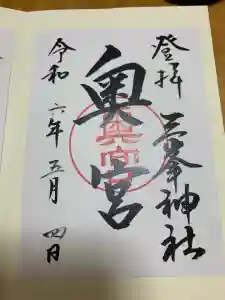 登拝
三峯神社
奥宮
奥宮
令和六年五月四日